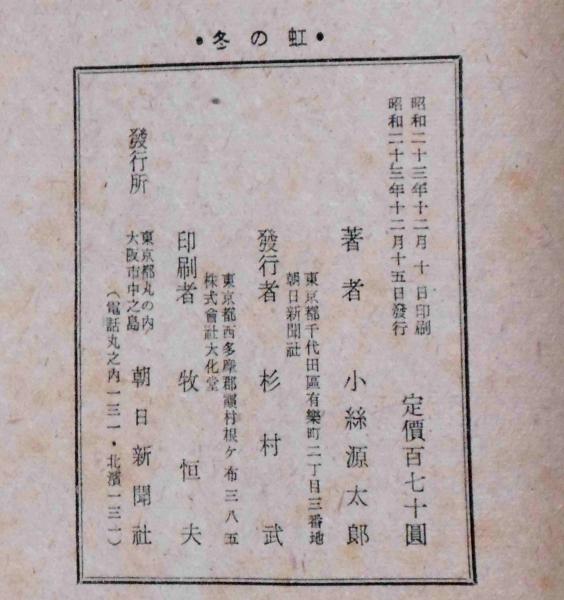 ・冬の虹・
昭和二十三年十二月 十 日印刷
昭和二十三年十二月十五日發行
定價百七十圓
著者 小絲源太郎
東京都千代田區有樂町二丁目三番地
朝日新聞社
發行者 杉村武
東京都西多摩郡霞村根ケ布三八五
株式會社大化堂
印刷者 牧恒夫
發行所
東京都丸の內
大阪市中之島
朝日新聞社
(電話丸之內一三一・北濱一三一)